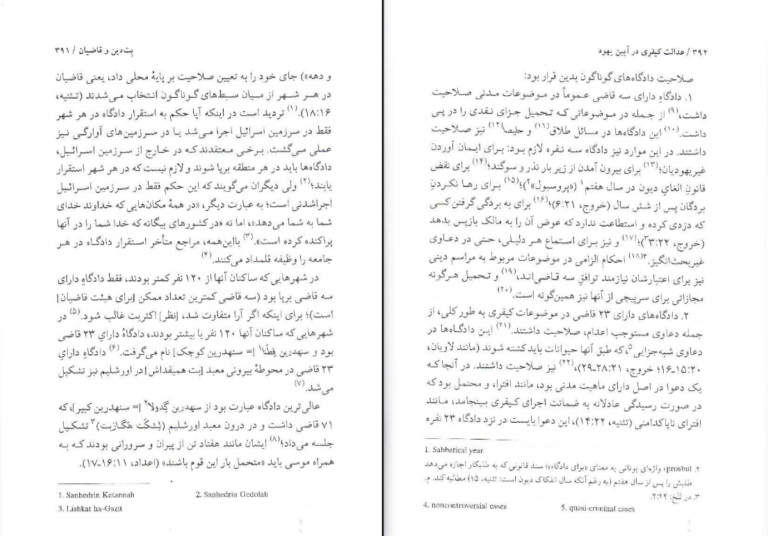 بِت‌دین و قاضیان / ۳۹۱
و دهه») جای خود را به تعیین صلاحیت بر پایهٔ محلی داد، یعنی قاضیان
در هر شهر از میان سبط‌های گوناگون انتخاب می‌شدند (تثنیه،
۱۸:۱۶).(۱) تردید است در اینکه آیا حکم به استقرار دادگاه در هر شهر
فقط در سرزمین اسرائیل اجرا می‌شد یا در سرزمین‌های آوارگی نیز
عملی می‌گشت. برخی معتقدند که در خارج از سرزمین اسرائیل،
دادگاه‌ها باید در هر منطقه برپا شوند و لازم نیست که در هر شهر استقرار
یابند؛(۲) ولی دیگران می‌گویند که این حکم فقط در سرزمین اسرائیل
اجراشدنی است؛ به عبارت دیگر، «در همهٔ مکان‌هایی که خداوند خدای
شما به شما می‌دهد»، اما نه «در کشورهای بیگانه که خدا شما را در آنها
پراکنده کرده است».(۳) بااین‌همه، مراجع متأخر استقرار دادگاه در هر
جامعه را وظیفه قلمداد می‌کنند.(۴)
در شهرهایی که ساکنان آنها از ۱۲۰ نفر کمتر بودند، فقط دادگاه دارای
سه قاضی برپا بود (سه قاضی کمترین تعداد ممکن [برای هیئت قاضیان]
است)؛ برای اینکه اگر آرا متفاوت شد، [نظر] اکثریت غالب شود.(۵) در
شهرهایی که ساکنان آنها ۱۲۰ نفر یا بیشتر بودند، دادگاهٔ دارای ۲۳ قاضی
بود و سنهدرین قِطنّا۱ [= سنهدرین کوچک] نام می‌گرفت.(۶) دادگاهِ دارای
۲۳ قاضی در محوطهٔ بیرونی معبد [بت همیقداش] در اورشلیم نیز تشکیل
می‌شد.(۷)
عالی‌ترین دادگاه عبارت بود از سنهدرین گِدولا۲ [= سنهدرین کبیر]، که
۷۱ قاضی داشت و در درون معبد اورشلیم (لِشکَّت هَگّازیت)۳ تشکیل
جلسه می‌داد؛(۸) ایشان مانند هفتاد تن از پیران و سرورانی بودند که به
همراه موسی باید «متحمل بار این قوم باشند» (اعداد، ۱۶:۱۱-۱۷).
1. Sanhedrin Ketannah
2. Sanhedrin Gedolah
3. Lishkat ha-Gazit
۳۹۲ / عدالت کیفری در آیین یهود
صلاحیت دادگاه‌های گوناگون بدین قرار بود:
۱. دادگاهِ دارای سه قاضی عموماً در موضوعات مدنی صلاحیت
داشت،(۹) از جمله در موضوعاتی که تحمیل جزای نقدی را در پی
داشت.(۱۰) این دادگاه‌ها در مسائل طلاق(۱۱) و حلیصا(۱۲) نیز صلاحیت
داشتند. در این موارد نیز دادگاه سه نفره لازم بود: برای ایمان آوردن
غیریهودیان؛(۱۳) برای بیرون آمدن از زیر بار نذر و سوگند؛(۱۴) برای نقض
قانونِ الغای دیون در سال هفتم۱ («پروسبول»۲)؛(۱۵) برای رها نکردن
بردگان پس از شش سال (خروج، ۶:۲۱)؛(۱۶) برای به بردگی گرفتن کسی
که دزدی کرده و استطاعت ندارد که عوض آن را به مالک بازپس بدهد
(خروج، ۳:۲۲۳)؛(۱۷) و نیز برای استماع هر دلیلی، حتی در دعاوی
غیربحث‌انگیز.۴(۱۸) احکام الزامی در موضوعات مربوط به مراسم دینی
نیز برای اعتبارشان نیازمند توافق سه قاضی‌اند،(۱۹) و تحمیل هرگونه
مجازاتی برای سرپیچی از آنها نیز همین‌گونه است.(۲۰)
۲. دادگاه‌های دارای ۲۳ قاضی در موضوعات کیفری به طور کلی، از
جمله دعاوی مستوجب اعدام، صلاحیت داشتند.(۲۱) این دادگاه‌ها در
دعاوی شبه‌جزایی۵، که طبق آنها حیوانات باید کشته شوند (مانند لاویان،
۱۵:۲۰-۱۶؛ خروج، ۲۸:۲۱-۲۹)،(۲۲) نیز صلاحیت داشتند. در آنجا که
یک دعوا در اصل دارای ماهیت مدنی بود، مانند افترا، و محتمل بود که
در صورت رسیدگی عادلانه به ضمانت اجرای کیفری بینجامد، مانند
افترای ناپاکدامنی (تثنیه، ۱۴:۲۲)، این دعوا بایست در نزد دادگاه ۲۳ نفره
1. Sabbetical year
۲. prosbul، واژه‌ای یونانی به معنای «برای دادگاه»؛ سند قانونی‌ای که به طلبکار اجازه می‌دهد
طلبش را پس از سال هفتم (به رغم آنکه سال انفکاک دیون است: تثنیه، ۱۵) مطالبه کند. م.
۳. در نسخ: ۲:۲۲.
4. noncontroversial cases
5. quasi-criminal cases